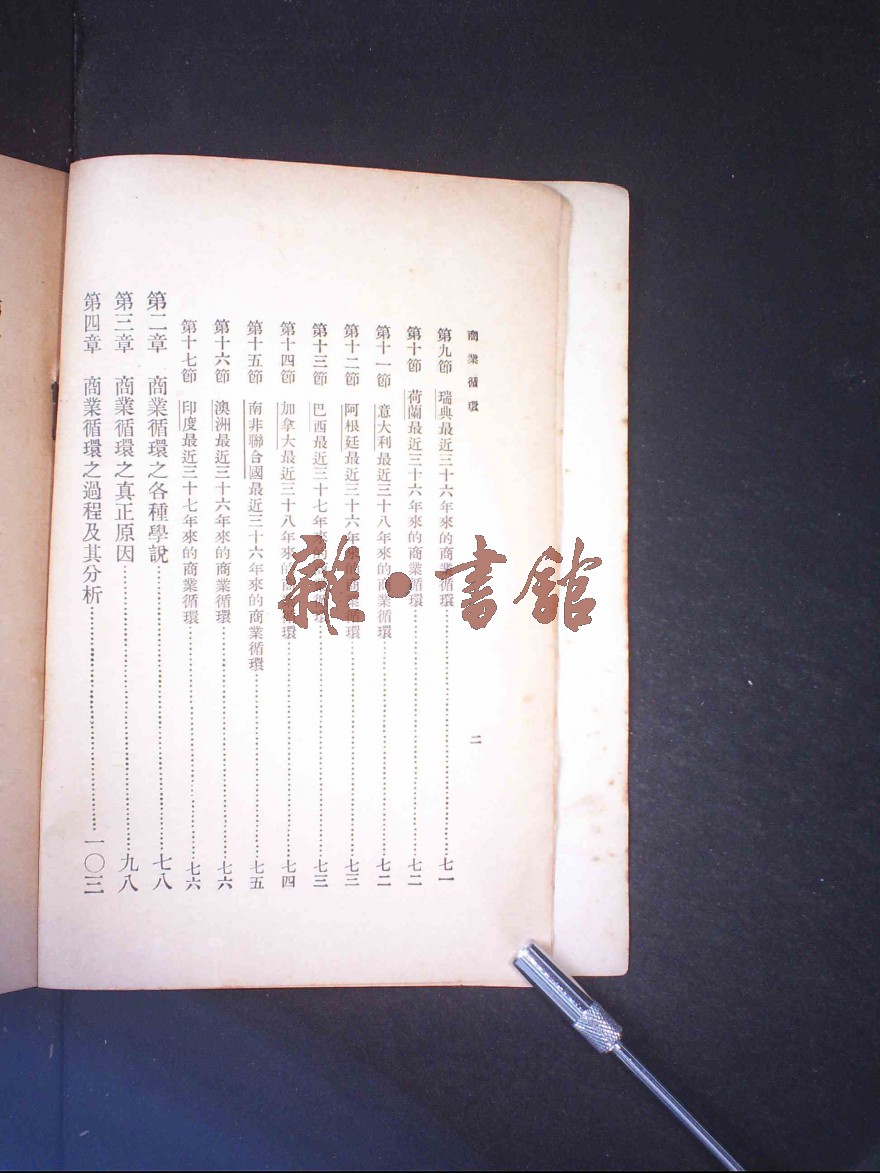 商業循環
二
第九節 瑞典最近三十六年來的商業循環……七一
第十節 荷蘭最近三十六年來的商業循環……七二
第十一節 意大利最近三十八年來的商業循環……七二
第十二節 阿根廷最近三十六年來的商業循環……七三
第十三節 巴西最近三十七年來的商業循環……七三
第十四節 加拿大最近三十八年來的商業循環……七四
第十五節 南非聯合國最近三十六年來的商業循環……七五
第十六節 澳洲最近三十六年來的商業循環……七六
第十七節 印度最近三十七年來的商業循環……七六
第二章 商業循環之各種學說……七八
第三章 商業循環之真正原因……九八
第四章 商業循環之過程及其分析……一〇三
雜·書館